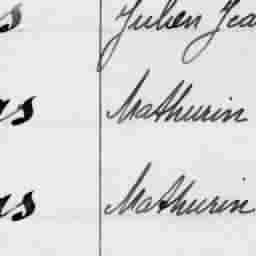 Julien Jea
Mathurin
Mathurin